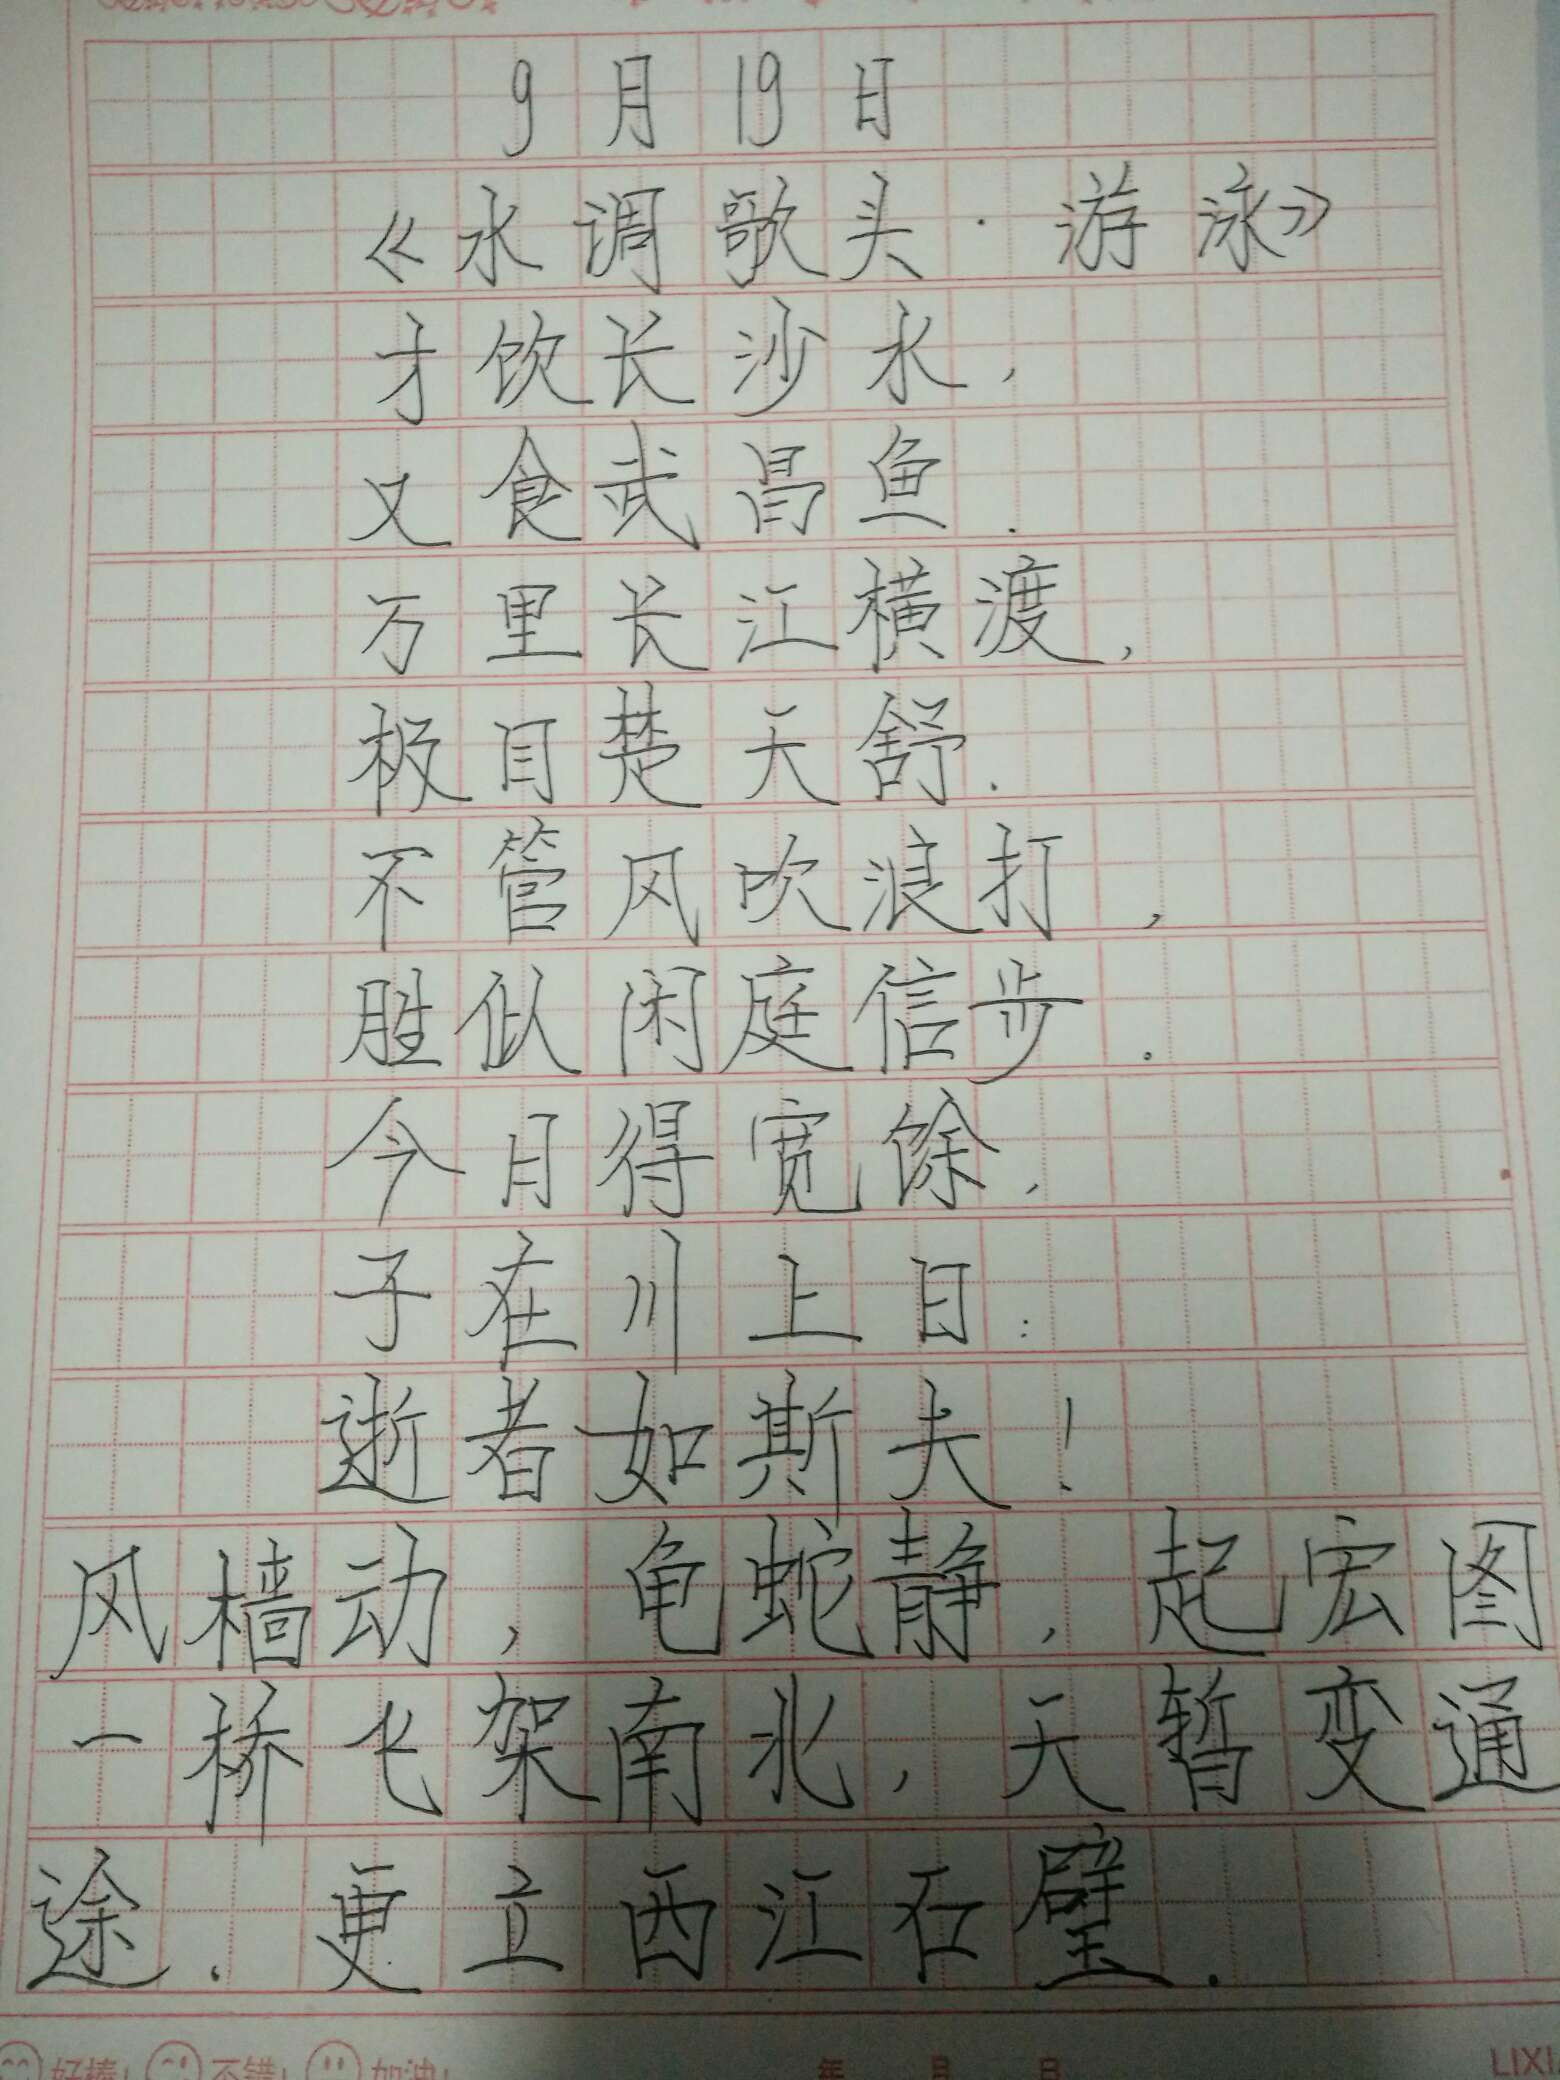 9月19日
《水调歌头·游泳》
才饮长沙水,
又食武昌鱼.
万里长江横渡,
极目楚天舒.
不管风吹浪打,
胜似闲庭信步.
今日得宽馀,
子在川上曰:
逝者如斯夫!
风樯动,龟蛇静,起宏图
一桥飞架南北,天暂变通
途.更立西江石壁.
好棒! 不错! 加油! 年 月 日 LIXI